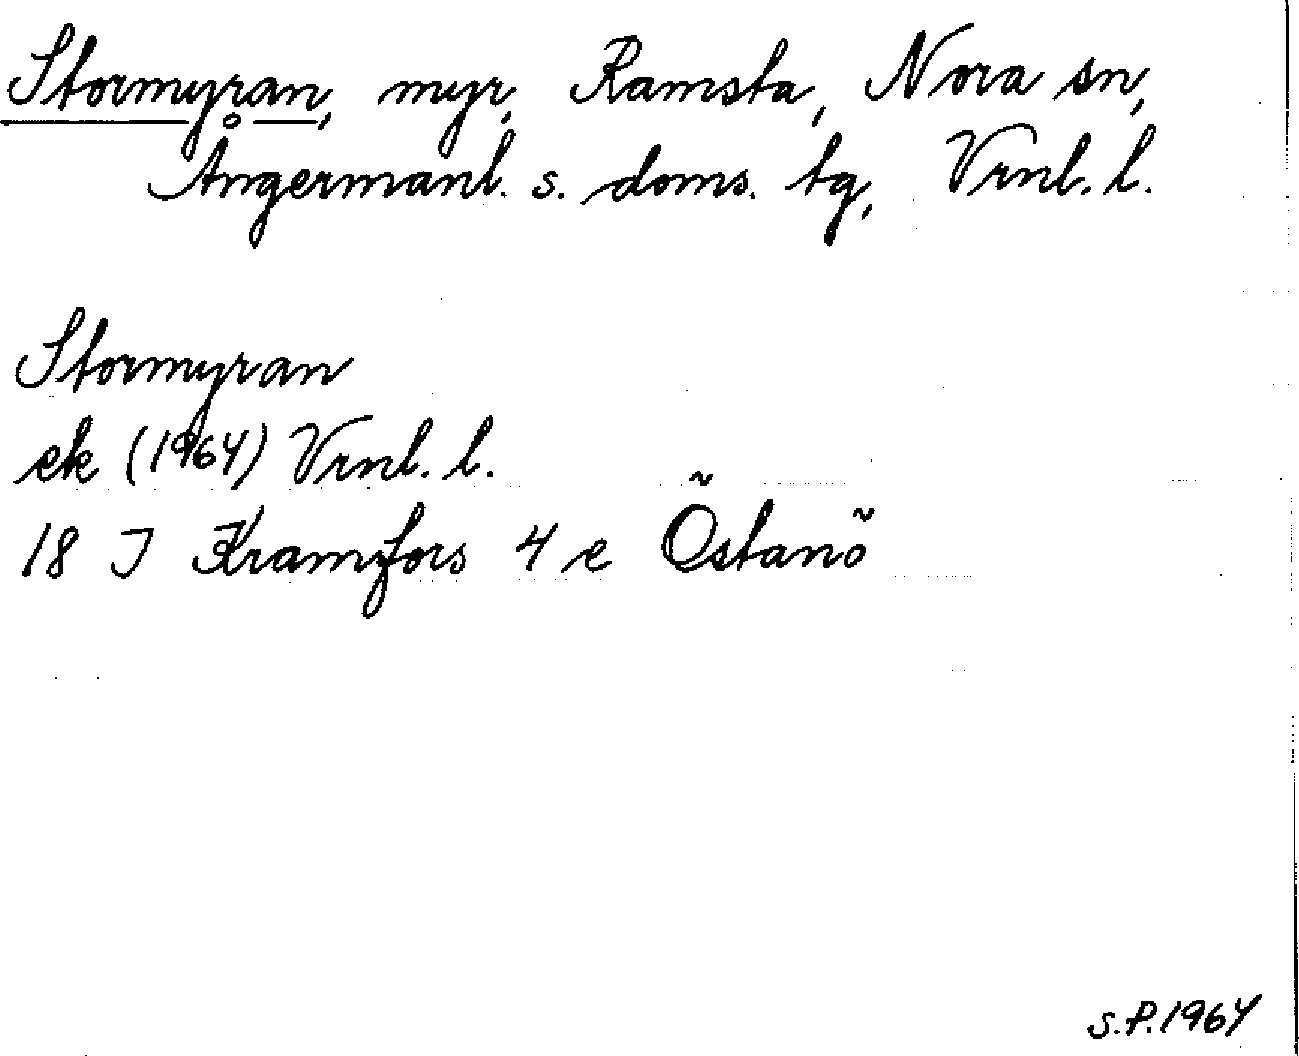 Stormyran, myr, Ramsta, Nora sn,
Ångermanl. s. doms. tg, Vrnl. l.
Stormyran
ek (1964) Vrnl. l.
18 I Kramfors 4 e Östanö
S.P. 1964